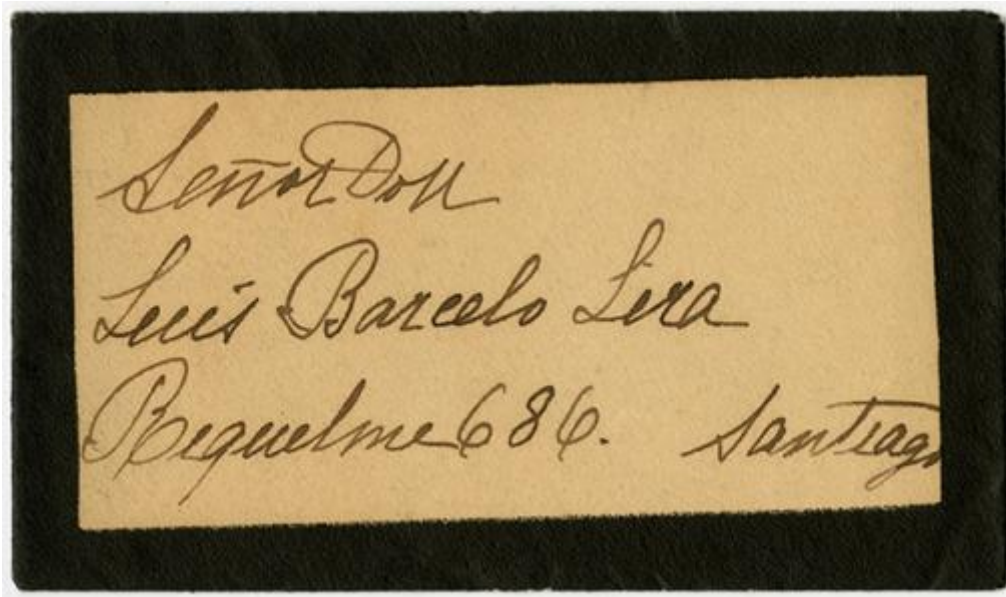 Señor Don
Luis Barcelo Lira
Riquelme 686. Santiago